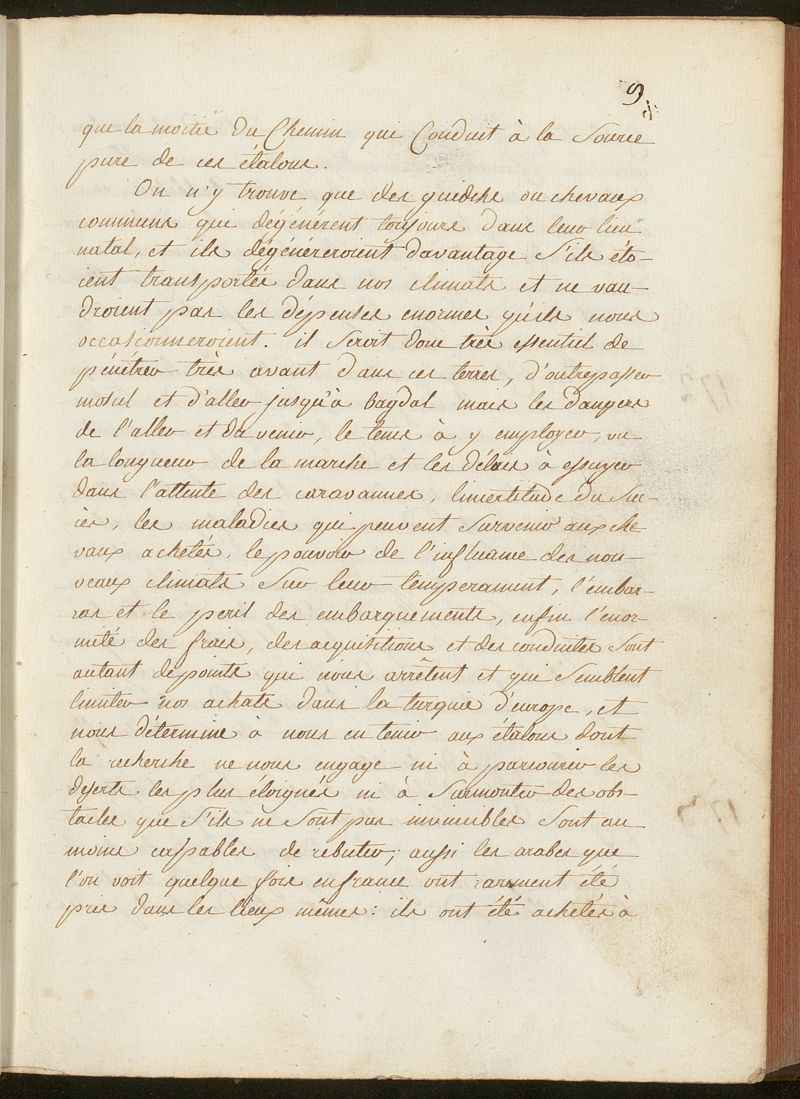 9
que la moitie du Chemin qui Conduit à la Source
pure de ces étalons.
On n'y trouve que des guidchs ou chevaux
communs qui dégénérent toujours dans leur lieu
natal, et ils dégénéreroient davantage s'ils éto-
ient transportés dans nos climats et ne vau-
droient pas les dépenses enormes qu'ils nous
occasionneroient. il seroit donc très essentiel de
pénétrer très avant dans ces terres, d'outrepasser
mosul et d'aller jusqu'à bagdal mais les dangers
de l'aller et du venir, le tems à y employer, vu
la longueur de la marche et les délais à essuyer
dans l'attente des caravannes, l'incertitude du suc-
cès, les maladies qui peuvent survenir aux che
vaux achetés, le pouvoir de l'influance des nou-
veaux climats sur leur temperament, l'embar-
ras et le peril des embarquements, enfin l'énor-
mité des frais, des acquisitions et des conduites sont
autant de points qui nous arrêtent et qui semblent
limiter nos achats dans la turquie d'europe, et
nous détermine à nous en tenir aux étalons dont
la recherche ne nous engage ni à parcourir les
déserts les plus éloignés ni à surmonter des obs-
tacles que s'ils ne sont pas invincibles sont au
moins cappables de rebuter; aussi les arabes que
l'on voit quelque fois en france ont rarement été
pris dans les lieux mêmes: ils ont été achetés à